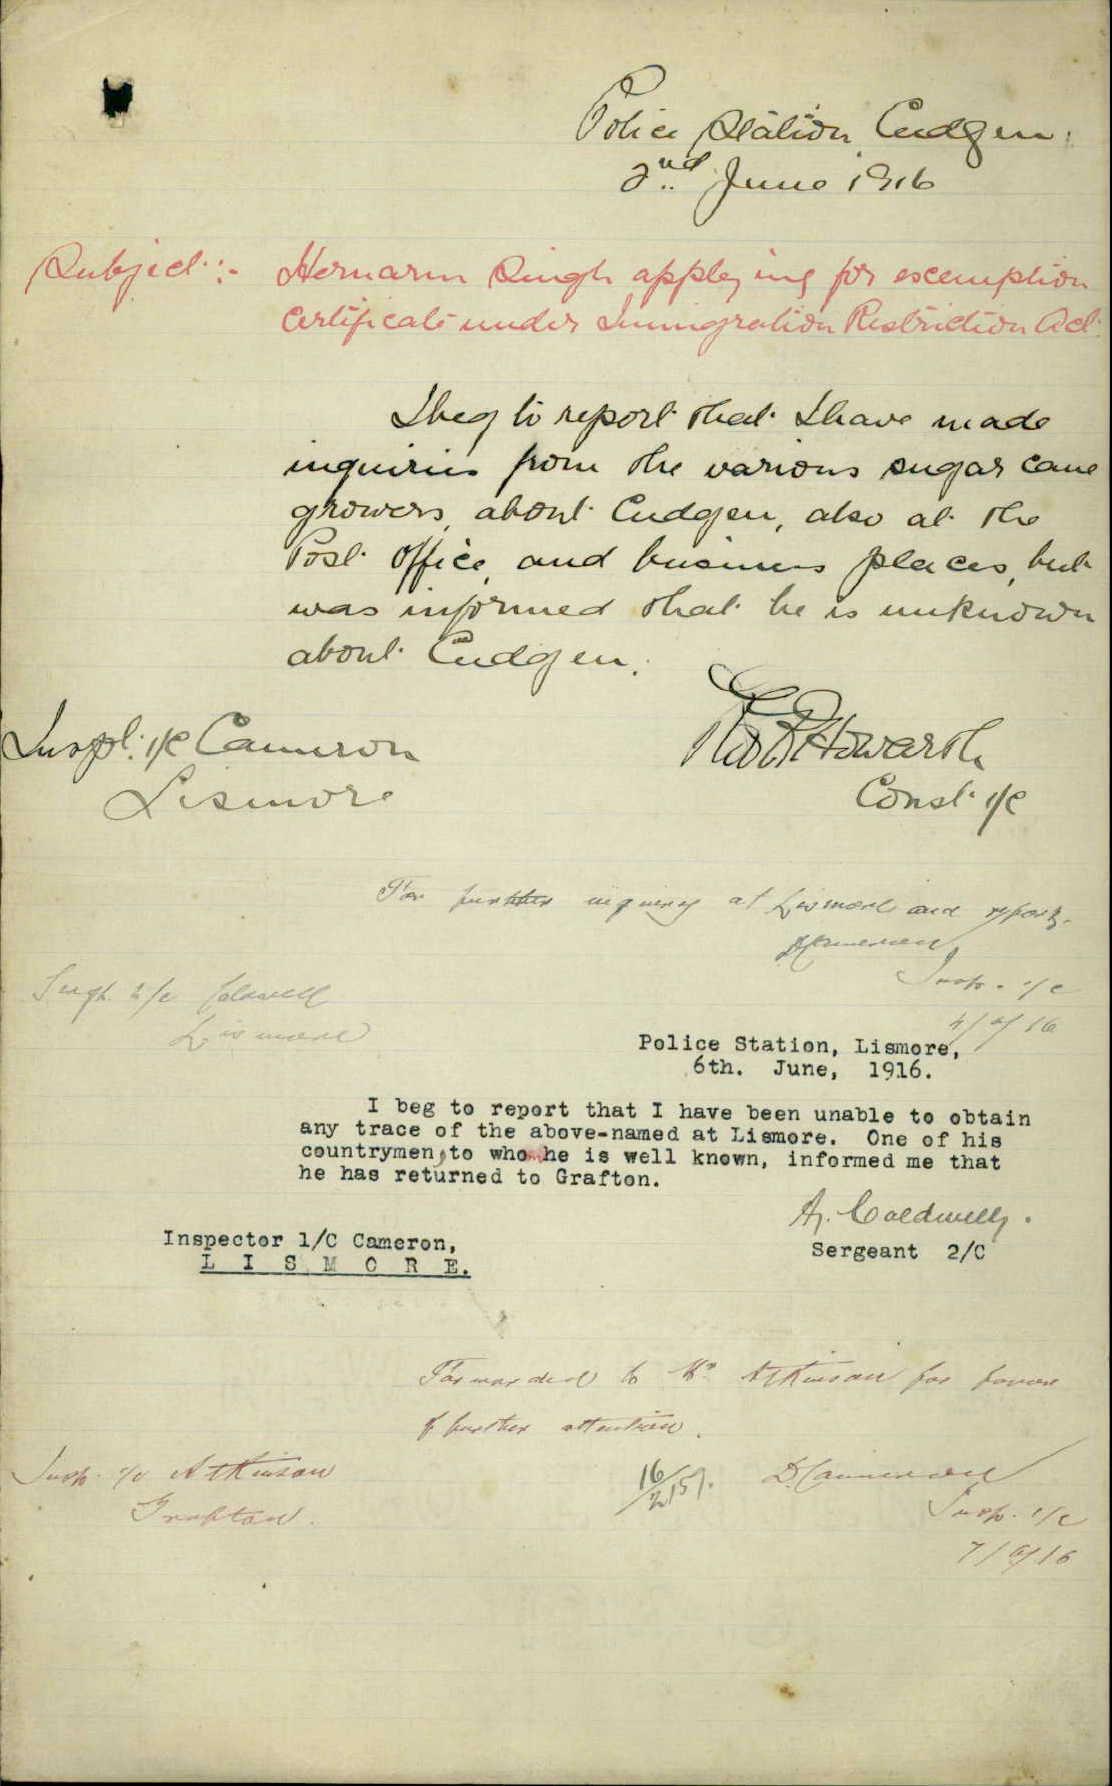 Police Station Cudgen.
2nd June 1916
Subject:- Hernarm Singh applying for excemption
Certificate under Immigration Restriction Act.
I beg to report that I have made
inquiries from the various sugar cane
growers, about Cudgen, also at the
Post Office, and business places, but
was informed that he is unknown
about Cudgen.
Inspt. 1/C Cameron
Lismore
Howarth
Const. 1/C
For further inquiry at Lismore and report.
DCameron
Insp. 1/C
4/6/16
Sergt. 2/c Caldwell
Lismore
Police Station, Lismore,
6th. June, 1916.
I beg to report that I have been unable to obtain
any trace of the above-named at Lismore. One of his
countrymen, to who he is well known, informed me that
he has returned to Grafton.
A. Caldwell.
Sergeant 2/C
Inspector 1/C Cameron,
L I S M O R E.
Forwarded to Mr. Atkinson for favour
of further attention.
Insp. 1/c Atkinson
Grafton.
16/2151.
D. Cameron
Insp. 1/c
7/6/16